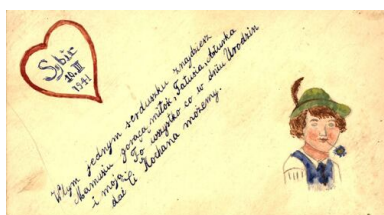 Sybir
10.II
1941
W tym jednym serduszku znajdziesz
Mamusiu gorąca miłość, Tatusia,
i moją. To wszystko co w dniu Urodzin
dać Ci Kochana możemy.